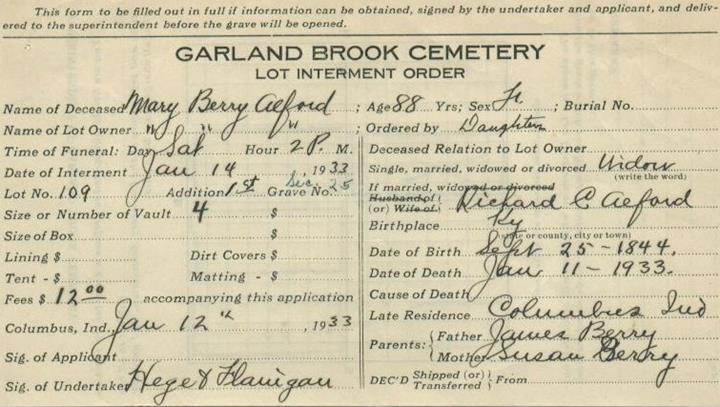 This form to be filled out in full if information can be obtained, signed by the undertaker and applicant, and deliv-
ered to the superintendent before the grave will be opened.
GARLAND BROOK CEMETERY
LOT INTERMENT ORDER
Name of Deceased Mary Berry Alford ; Age 88 Yrs; Sex ; Burial No.
Name of Lot Owner " " " ; Ordered by Daughters
Time of Funeral: Day Sat Hour 2 P. M. Deceased Relation to Lot Owner
Date of Interment Jan 14, 1933 Single, married, widowed or divorced Widow
(write the word)
Lot No. 109 Addition 1st Grave No. Sec. 25 If married, widowed or divorced
Husband of
(or) Wife of Richard C Alford
Size or Number of Vault 4 $ Birthplace Ky
(state or county, city or town)
Size of Box $ Date of Birth Sept 25-1844.
Lining $ Dirt Covers $ Date of Death Jan 11-1933.
Tent - $ Matting - $
Fees $ 12.00 accompanying this application Cause of Death
Columbus, Ind., Jan 12th, 1933 Late Residence Columbus Ind
Sig. of Applicant Parents: Father James Berry
Mother Susan Berry
Sig. of Undertaker Hege & Flanigan DEC'D Shipped (or) Transferred From